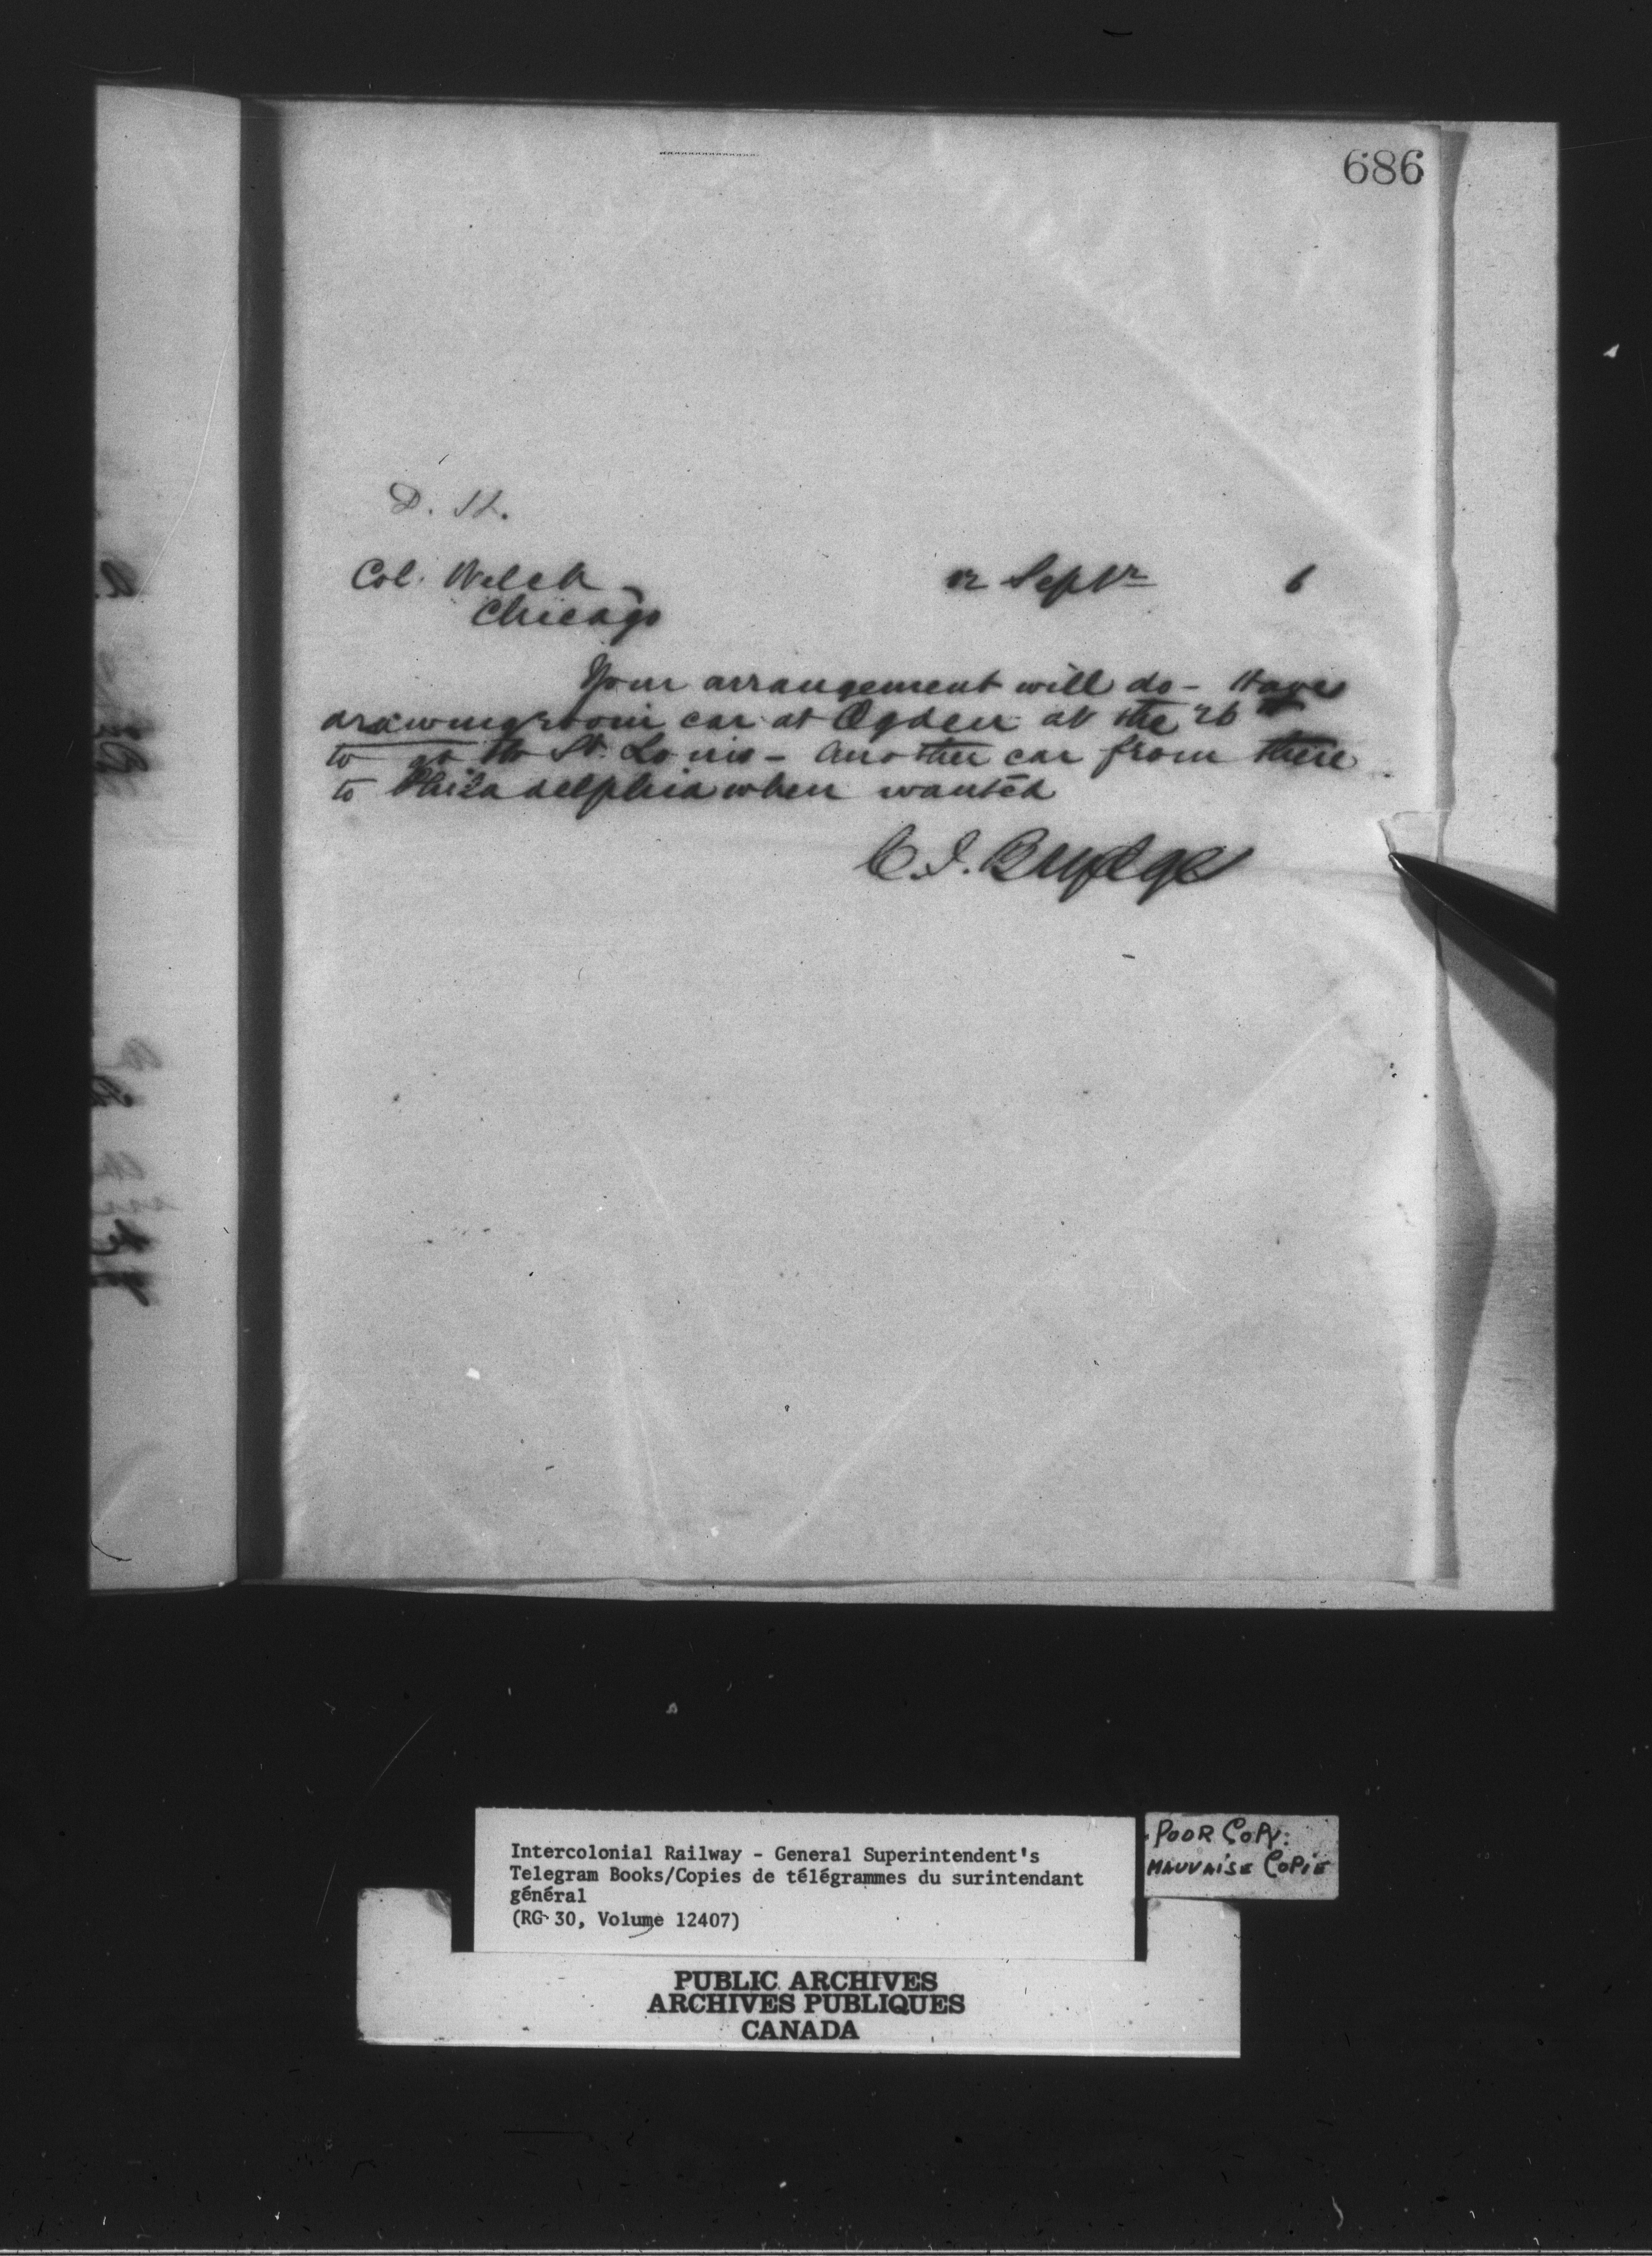 686
D. H.
Col. Welch 12 Septr 6
Chicago
Your arrangement will do - Have
drawingroom car at Ogden at the 26th
to go to St. Louis - Another car from there
to Philadelphia when wanted
C. J. Brydges
Intercolonial Railway - General Superintendent's
Telegram Books/Copies de télégrammes du surintendant
général
(RG 30, Volume 12407)
POOR COPY.
MAUVAISE COPIE
PUBLIC ARCHIVES
ARCHIVES PUBLIQUES
CANADA